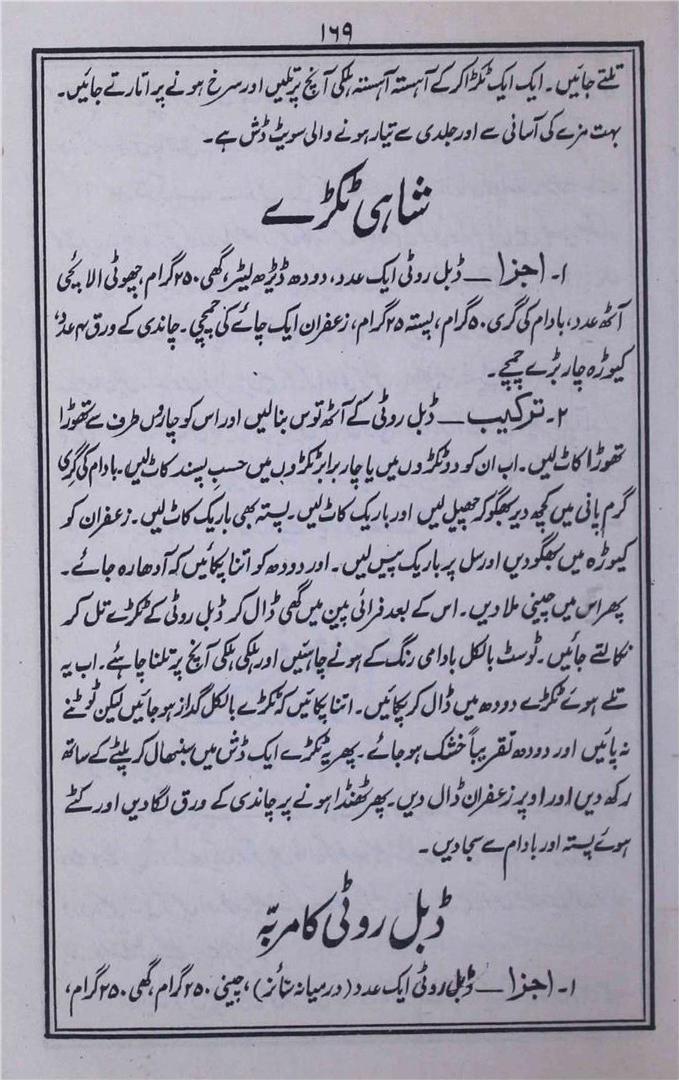 ۱۶۹
تلتے جائیں۔ ایک ایک ٹکڑا کر کے آہستہ آہستہ ہلکی آنچ پر تلیں اور سرخ ہونے پر اتارتے جائیں۔
بہت مزے کی آسانی سے اور جلدی سے تیار ہونے والی سویٹ ڈش ہے۔
شاہی ٹکڑے
۱۔ اجزا — ڈبل روٹی ایک عدد، دودھ ڈیڑھ لیٹر، گھی ۲۵۰ گرام، چھوٹی الائچی
آٹھ عدد، بادام کی گری ۵۰ گرام، پستہ ۲۵ گرام، زعفران ایک چائے کی چمچی۔ چاندی کے ورق ۴ عدد،
کیوڑہ چار بڑے چمچے۔
۲۔ ترکیب — ڈبل روٹی کے آٹھ توس بنالیں اور اس کو چاروں طرف سے تھوڑا
تھوڑا کاٹ لیں۔ اب ان کو دو ٹکڑوں میں یا چار برابر ٹکڑوں میں حسب پسند کاٹ لیں۔ بادام کی گری
گرم پانی میں کچھ دیر بھگو کر چھیل لیں اور باریک کاٹ لیں۔ پستہ بھی باریک کاٹ لیں۔ زعفران کو
کیوڑہ میں بھگو دیں اور سل پر باریک پیس لیں۔ اور دودھ کو اتنا پکائیں کہ آدھا رہ جائے۔
پھر اس میں چینی ملا دیں۔ اس کے بعد فرائی پین میں گھی ڈال کر ڈبل روٹی کے ٹکڑے تل کر
نکالتے جائیں۔ ٹوسٹ بالکل بادامی رنگ کے ہونے چاہئیں اور ہلکی ہلکی آنچ پر تلنا چاہئے۔ اب یہ
تلے ہوئے ٹکڑے دودھ میں ڈال کر پکائیں۔ اتنا پکائیں کہ ٹکڑے بالکل گداز ہو جائیں لیکن ٹوٹنے
نہ پائیں اور دودھ تقریباً خشک ہو جائے۔ پھر یہ ٹکڑے ایک ڈش میں سنبھال کر پلٹے کے ساتھ
رکھ دیں اور اوپر زعفران ڈال دیں۔ پھر ٹھنڈا ہونے پر چاندی کے ورق لگا دیں اور کٹے
ہوئے پستہ اور بادام سے سجا دیں۔
ڈبل روٹی کا مربّہ
۱۔ اجزا — ڈبل روٹی ایک عدد (درمیانہ سائز)، چینی ۲۵۰ گرام، گھی ۲۵۰ گرام،